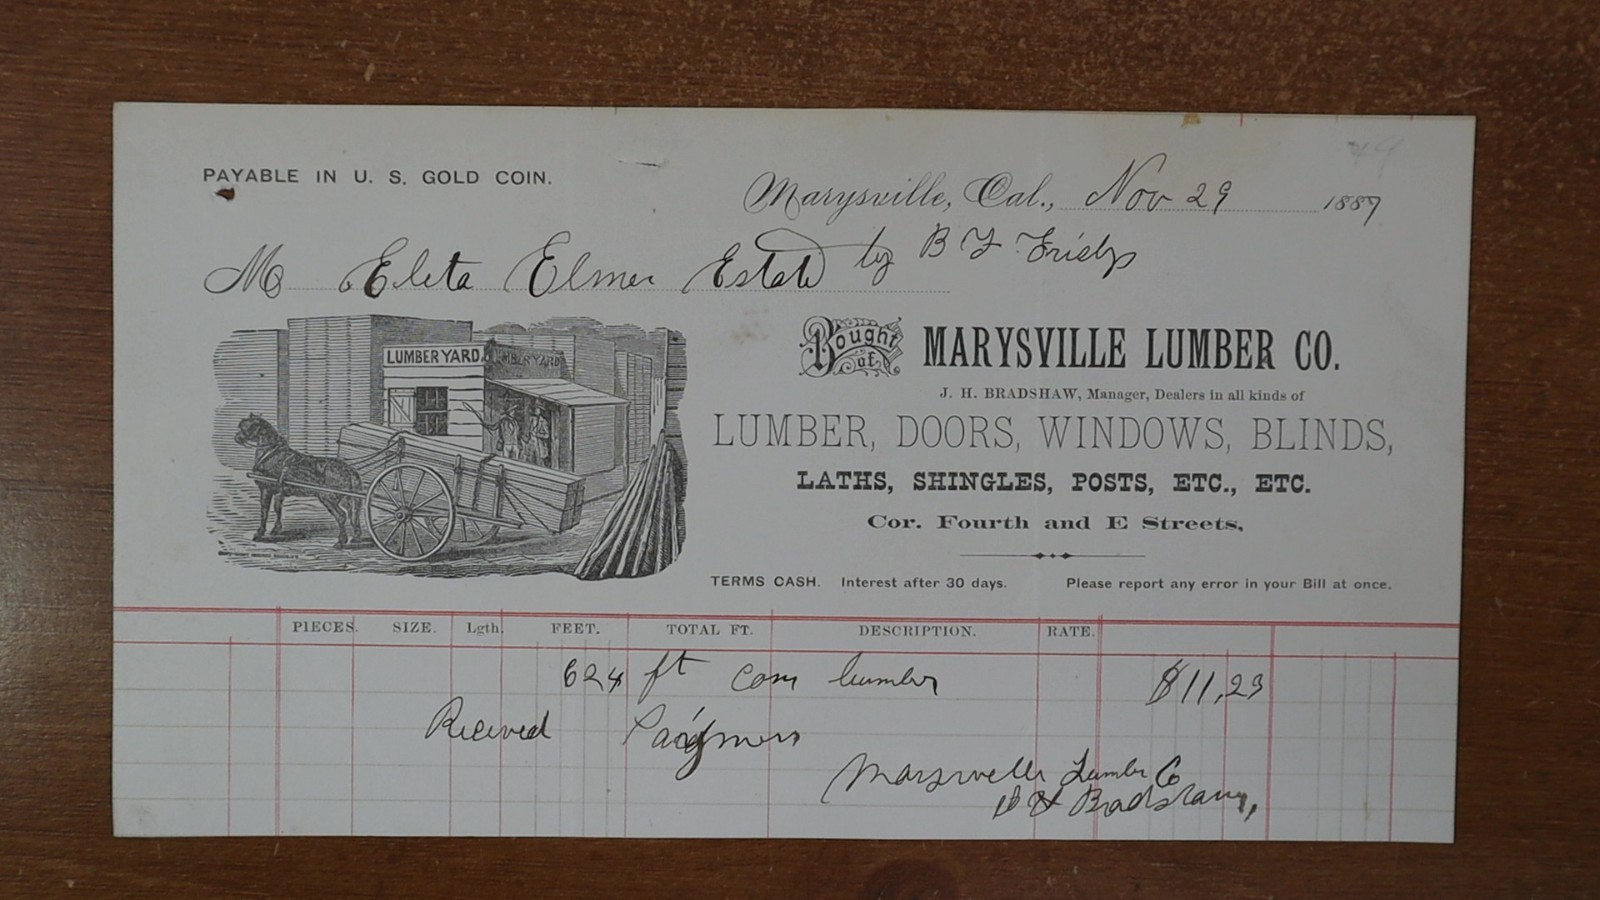 49
PAYABLE IN U. S. GOLD COIN.
Marysville, Cal., Nov 29 1887
M Eleta Elmer Estate by B F Frisby
LUMBER YARD. LUMBER YARD
Bought of MARYSVILLE LUMBER CO.
J. H. BRADSHAW, Manager, Dealers in all kinds of
LUMBER, DOORS, WINDOWS, BLINDS,
LATHS, SHINGLES, POSTS, ETC., ETC.
Cor. Fourth and E Streets,
TERMS CASH. Interest after 30 days. Please report any error in your Bill at once.
PIECES. SIZE. Lgth. FEET. TOTAL FT. DESCRIPTION. RATE.
624 ft com lumber $11,23
Received Payment
Marysville Lumber Co
J H Bradshaw,